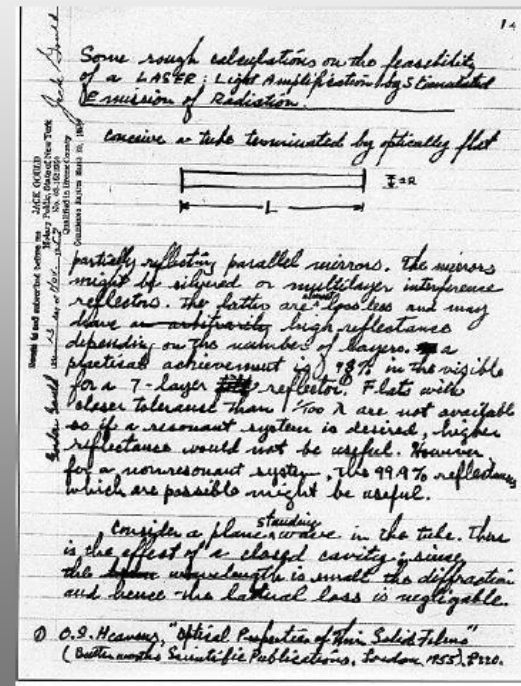 14
Some rough calculations on the feasibility
of a LASER: Light Amplification by Stimulated
Emission of Radiation.
conceive a tube terminated by optically flat
L
partially reflecting parallel mirrors. The mirrors
might be silvered or multilayer interference
reflectors. The latter are almost lossless and may
have an arbitrarily high reflectance
depending on the number of layers. a
practical achievement is 98% in the visible
for a 7-layer reflector. Flats with
closer tolerance than 1/100 λ are not available
so if a resonant system is desired, higher
reflectance would not be useful. However
for a nonresonant system, the 99.9% reflectances
which are possible might be useful.
Consider a plane standing wave in the tube. There
is the effect of a closed cavity; since
the wavelength is small the diffraction
and hence the lateral loss is negligable.
① O.S. Heavens, "Optical Properties of Thin Solid Films"
(Butterworths Scientific Publications, London, 1955), p220.
Jack Gould
JACK GOULD
Notary Public, State of New York
Gordon Gould